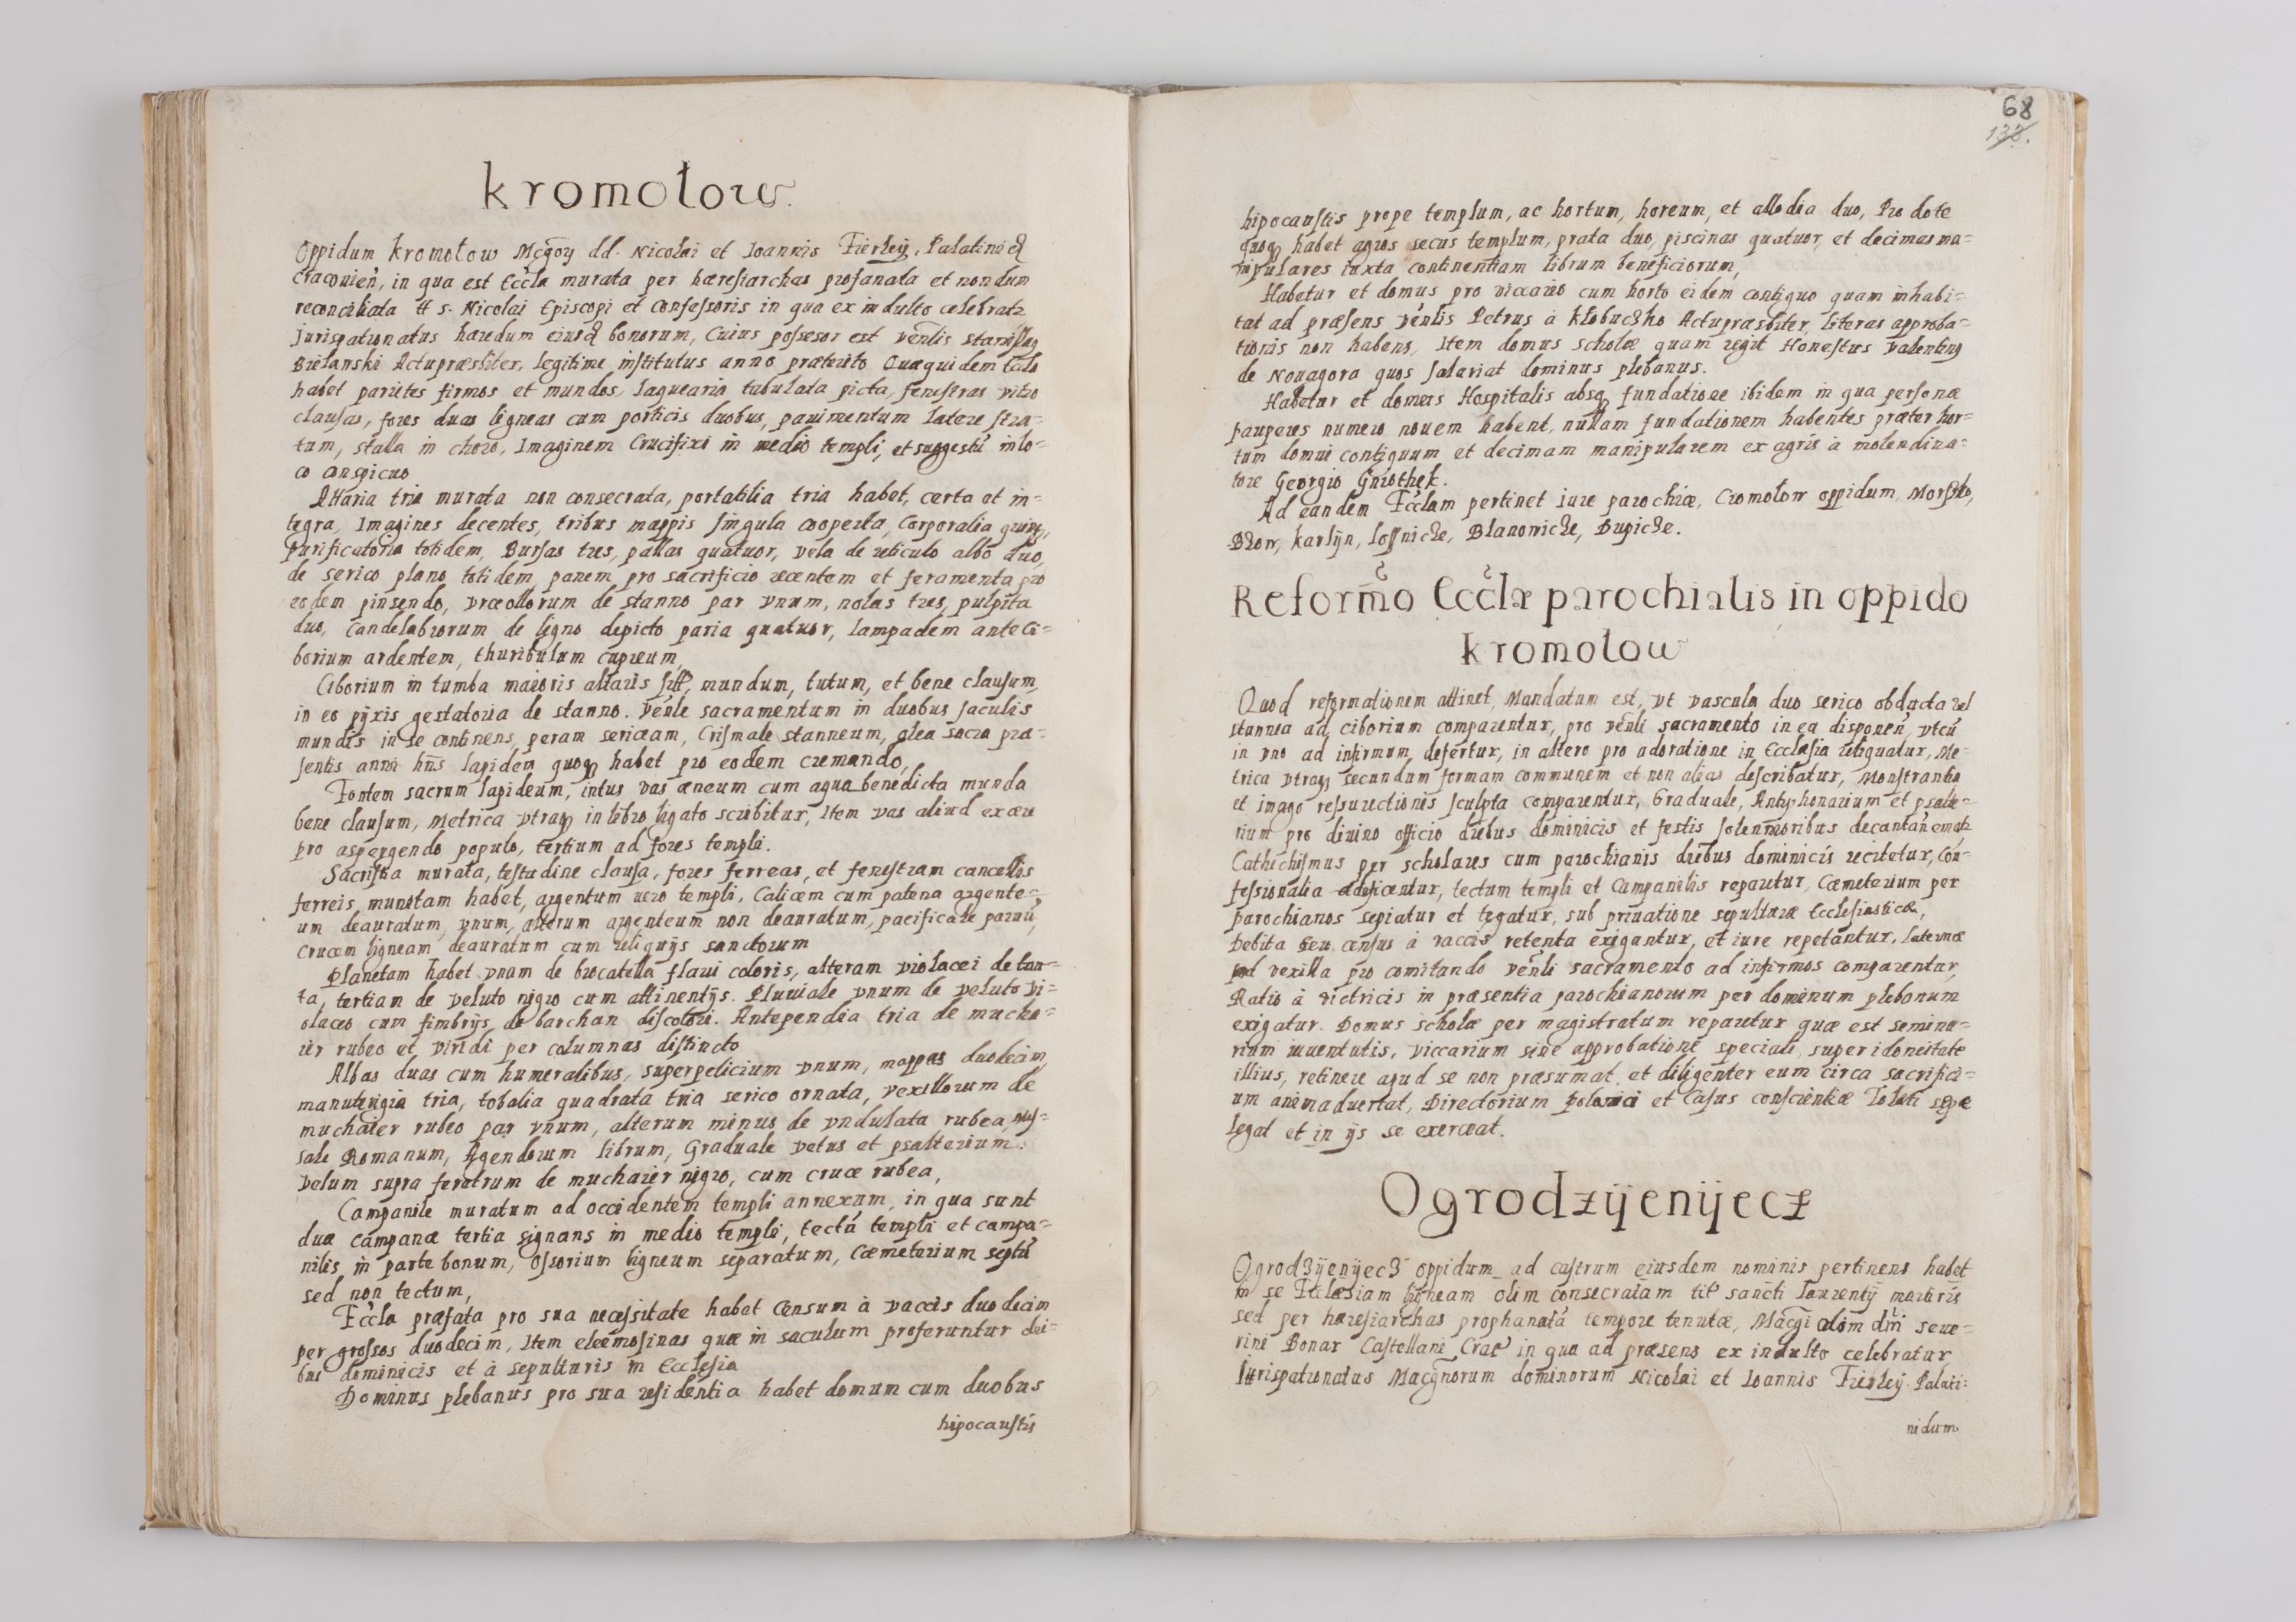 kromołow.
Oppidum kromołow Mcgōy dd. Nicolai et Ioannis Fierleij, Palatiniđ
Cracouień, in qua est Eccla murata per hæresiarchas profanata et nondum
reconciliata tt s. Nicolai Episcopi et Confessoris in qua ex indulto celebratz
jurispatronatus hæredum eiusđ bonorum, Cuius possesor est venlis Stanislaq
Bielanski Actupræsbiter, legitime institutus anno præterito Quæquidem
habet parietes firmos et mundos, laquearia tabulata picta, fenestras vitro
clausas, fores duas ligneas cum porticis duobus, pauimentum latere stra=
tum, stalla in choro, Imaginem Crucifixi in medio templi, et suggestũ in lo=
co conspicuo
Altaria tria murata non consecrata, portatilia tria habet, certa et in=
tegra, Imagines decentes, tribus mappis singula cooperta, Corporalia quinq,
Purificatoria totidem, Bursas tres, pallas quatuor, vela de reticulo albo duo,
de serico plano totidem, panem pro sacrificio recentem et feramenta pro
eodem pinsendo, vrceollorum de stanno par vnum, nolas tres, pulpita
duo, Candelabrorum de ligno depicto paria quatuor, lampadem ante Ci=
borium ardentem, thuribulum cupreum,
Ciborium in tumba maioris altaris mundum, tutum, et bene clausum,
in eo pijxis gestatoria de stanno. Venle sacramentum in duobus saculis
mundis in se continens, peram sericeam, Crismale stanneum, olea sacra præ=
sentis anni hns lapidem quoq habet pro eodem cremando,
Fontem sacrum lapideum, intus vas æneum cum aqua benedicta munda
bene clausum, metrica vtraq in libro ligato scribitur, Item vas aliud ex ære
pro aspergendo populo, tertium ad fores templi.
Sacristia murata, testudine clausa, fores ferreas, et fenestram cancellis
ferreis munitam habet, argentum uero templi, Calicem cum patena argente=
um deauratum, vnum, alterum argenteum non deauratum, pacificale paruũ,
Crucem ligneam deauratum cum reliquijs sanctorum
Planetam habet vnam de brocatella flaui coloris, alteram violacei de tan=
ta, tertiam de veluto nigro cum attinentijs. Pluuiale vnum de veluto vi=
olaceo cum fimbrijs de barchan discolori. Antependia tria de mucha=
ier rubeo et viridi per columnas distincto
Albas duas cum humeralibus, superpelicium vnum, mappas duodecim,
manutergia tria, tobalia quadrata tria serico ornata, vexillorum de
muchaier rubeo par vnum, alterum minus de vndulata rubea, mis=
sale Romanum, Agendorum librum, Graduale vetus et psalterium.
Velum supra feretrum de muchaier nigro, cum cruce rubea,
Campanile muratum ad occidentem templi annexum, in qua sunt
duæ campanæ tertia signans in medio templi, tectũ templi et campa=
nilis in parte bonum, Ossorium ligneum separatum, Cæmeterium septũ
sed non tectum,
Eccla præfata pro sua necessitate habet Censum à vaccis duodecim
per grossos duodecim, Item eleemosinas quæ in saculum proferuntur die=
bus dominicis et à sepulturis in Ecclesia
Dominus plebanus pro sua residentia habet domum cum duobus
hipocaustis
68
138.
hipocaustis prope templum, ac hortum, horeum, et allodia duo, Pro dote
quoq habet agros secus templum, prata duo, piscinas quatuor, et decimas ma=
nipulares iuxta continentiam librum beneficiorum,
Habetur et domus pro viccario cum horto eidem contiguo quam inhabi=
tat ad præsens venlis Petrus à kłobuczko Actupræsbiter, literas approba=
tionis non habens, Item domus scholæ quam regit Honestus valentinq
de Nouagora quos salariat dominus plebanus.
Habetur et domus Hospitalis absq fundatione ibidem in qua personæ
pauperes numero nouem habent, nullam fundationem habentes præter hor=
tum domui contiguum et decimam manipularem ex agris à molendina=
tore Georgio Gniothek.
Ad eandem Ecclam pertinet iure parochiæ, Cromołow oppidum, Morsko,
Bzow, karlijn, Lośnicze, Blanowicze, Dupicze.
Reformo Ecclæ parochialis in oppido
kromolow
Quod reformationem attinet, Mandatum est, vt vascula duo serico obducta vel
stannea ad ciborium comparentur, pro venli sacramento in ea disponen, vtcũ
in vno ad infirmum, defertur, in altero pro adoratione in Ecclesia reliquatur, Me=
trica vtraq secundum formam communem et non alias describatur, Monstrantia
et imago ressurectionis sculpta comparentur, Graduale, Antyphonarium et psalte=
rium pro diuino officio diebus dominicis et festis solennioribus decantan ematz
Cathichismus per scholares cum parochianis diebus dominicis recitetur, Con=
fessionalia ædificentur, tectum templi et Campanilis reparetur, Cæmeterium per
parochianos sepiatur et tegatur, sub priuatione sepulturæ Ecclesiasticæ,
Debita seu census à vaccis retenta exigantur, et iure repetantur. Laternæ
vexilla pro comitando venli sacramento ad infirmos comparentur,
Ratio à victricis in præsentia parochianorum per dominum plebanum
exigatur. Domus scholæ per magistratum reparetur quæ est semina=
rium iuuentutis, viccarium sine approbatione speciali, super idoneitate
illius, retinere apud se non præsumat, et diligenter eum circa sacrifici=
um animaduertat, Directorium Polonici et Casus conscientiæ Toleti sępe
legat et in ijs se exerceat.
Ogrodzijenijecz
Ogrodzijenijecz oppidum ad castrum eiusdem nominis pertinens habet
in se Ecclesiam ligneam olim consecratam tit sancti laurentij martiris
sed per hæresiarchas prophanatã tempore tenutæ, Macgi dom dni seue=
rini Bonar Castellani Crac in qua ad præsens ex indulto celebratur,
Iurispatronatus Macgnorum dominorum Nicolai et Ioannis Fierleij Palati=
nidum